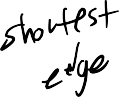 shortest
edge